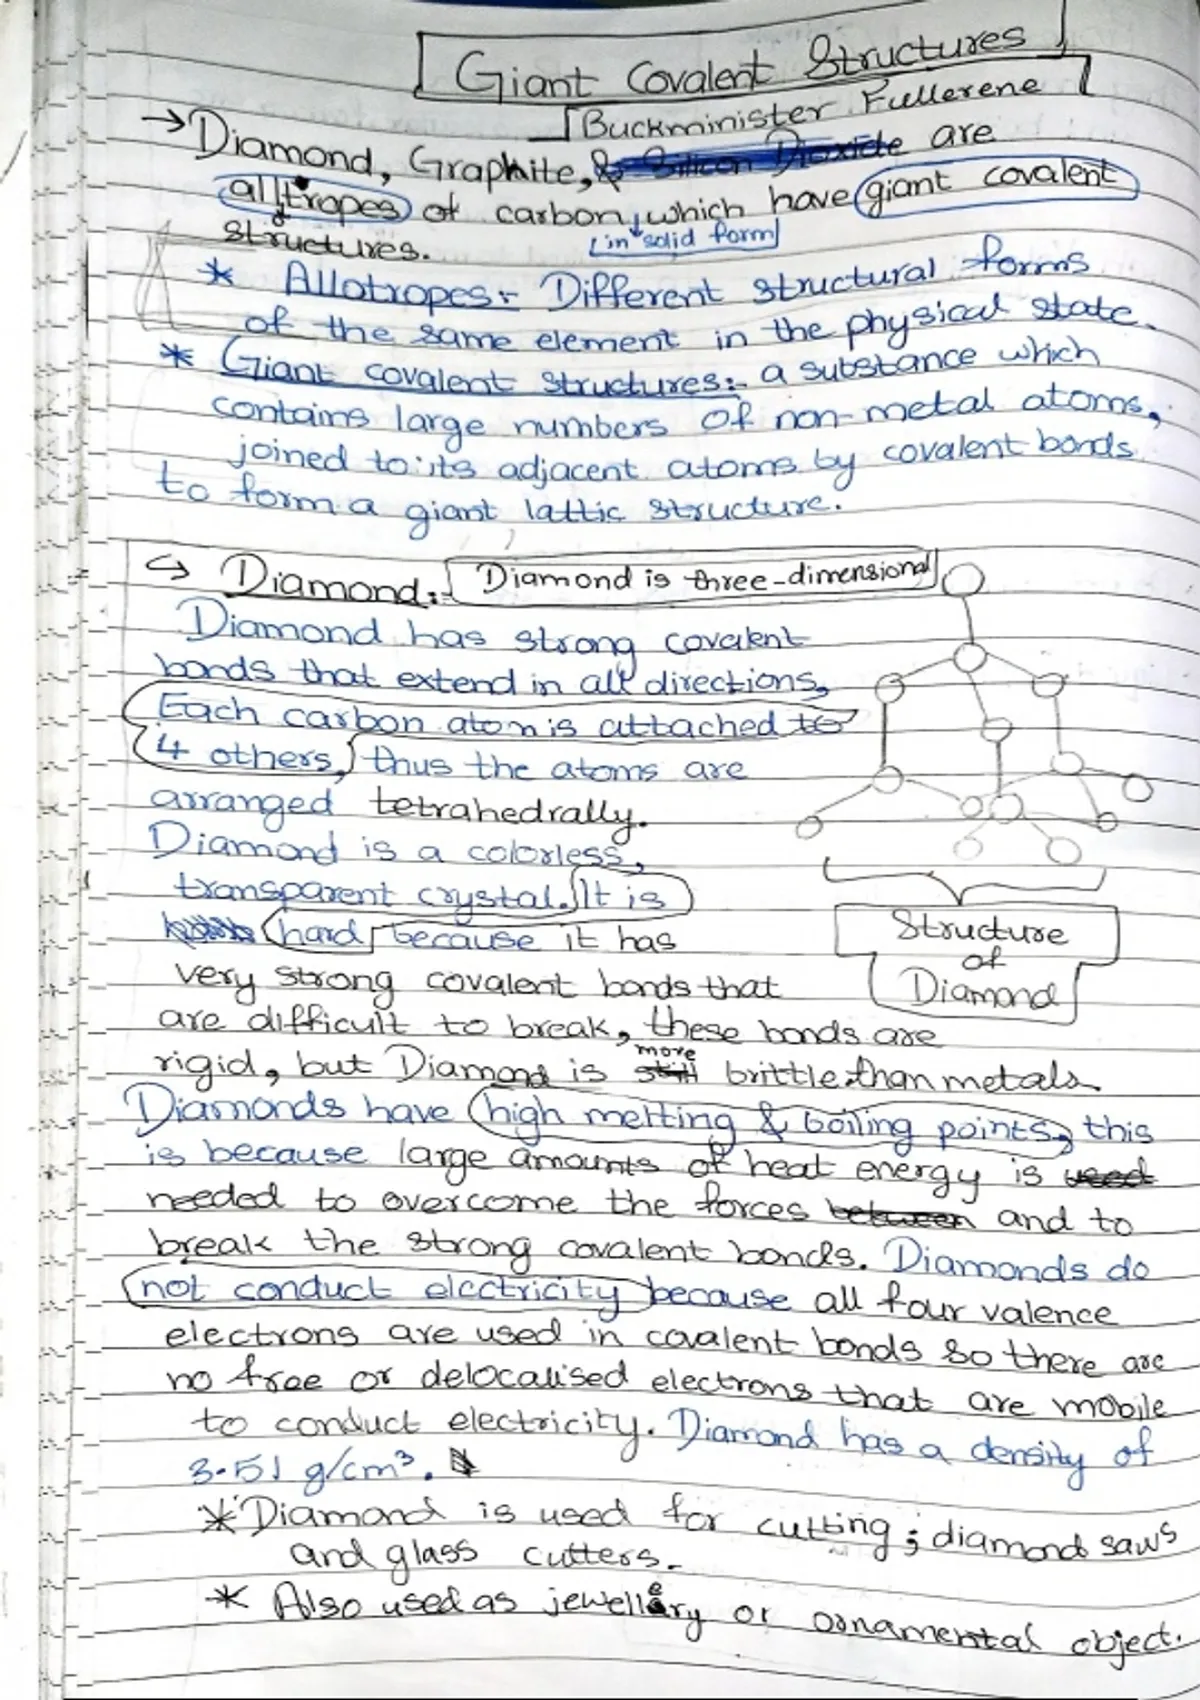 Giant Covalent Structures
Buckminister Fullerene
→ Diamond, Graphite, & Silicon Dioxide are
alltropes of carbon, which have giant covalent
structures. in solid form
* Allotropes:- Different structural forms
of the same element in the physical state.
* Giant covalent structures:- a substance which
contains large numbers of non-metal atoms,
joined to its adjacent atoms by covalent bonds
to form a giant lattic structure.
↪ Diamond:- Diamond is three-dimensional
Diamond has strong covalent
bonds that extend in all directions,
Each carbon atom is attached to
4 others, thus the atoms are
arranged tetrahedrally.
Diamond is a colorless,
transparent crystal. It is
hard because it has
very strong covalent bonds that
are difficult to break, these bonds are
rigid, but Diamond is still more brittle than metals.
Structure
of
Diamond
Diamonds have high melting & boiling points, this
is because large amounts of heat energy is used
needed to overcome the forces between and to
break the strong covalent bonds. Diamonds do
not conduct electricity because all four valence
electrons are used in covalent bonds so there are
no free or delocalised electrons that are mobile
to conduct electricity. Diamond has a density of
3.51 g/cm³.
* Diamond is used for cutting; diamond saws
and glass cutters.
* Also used as jewellery or ornamental object.